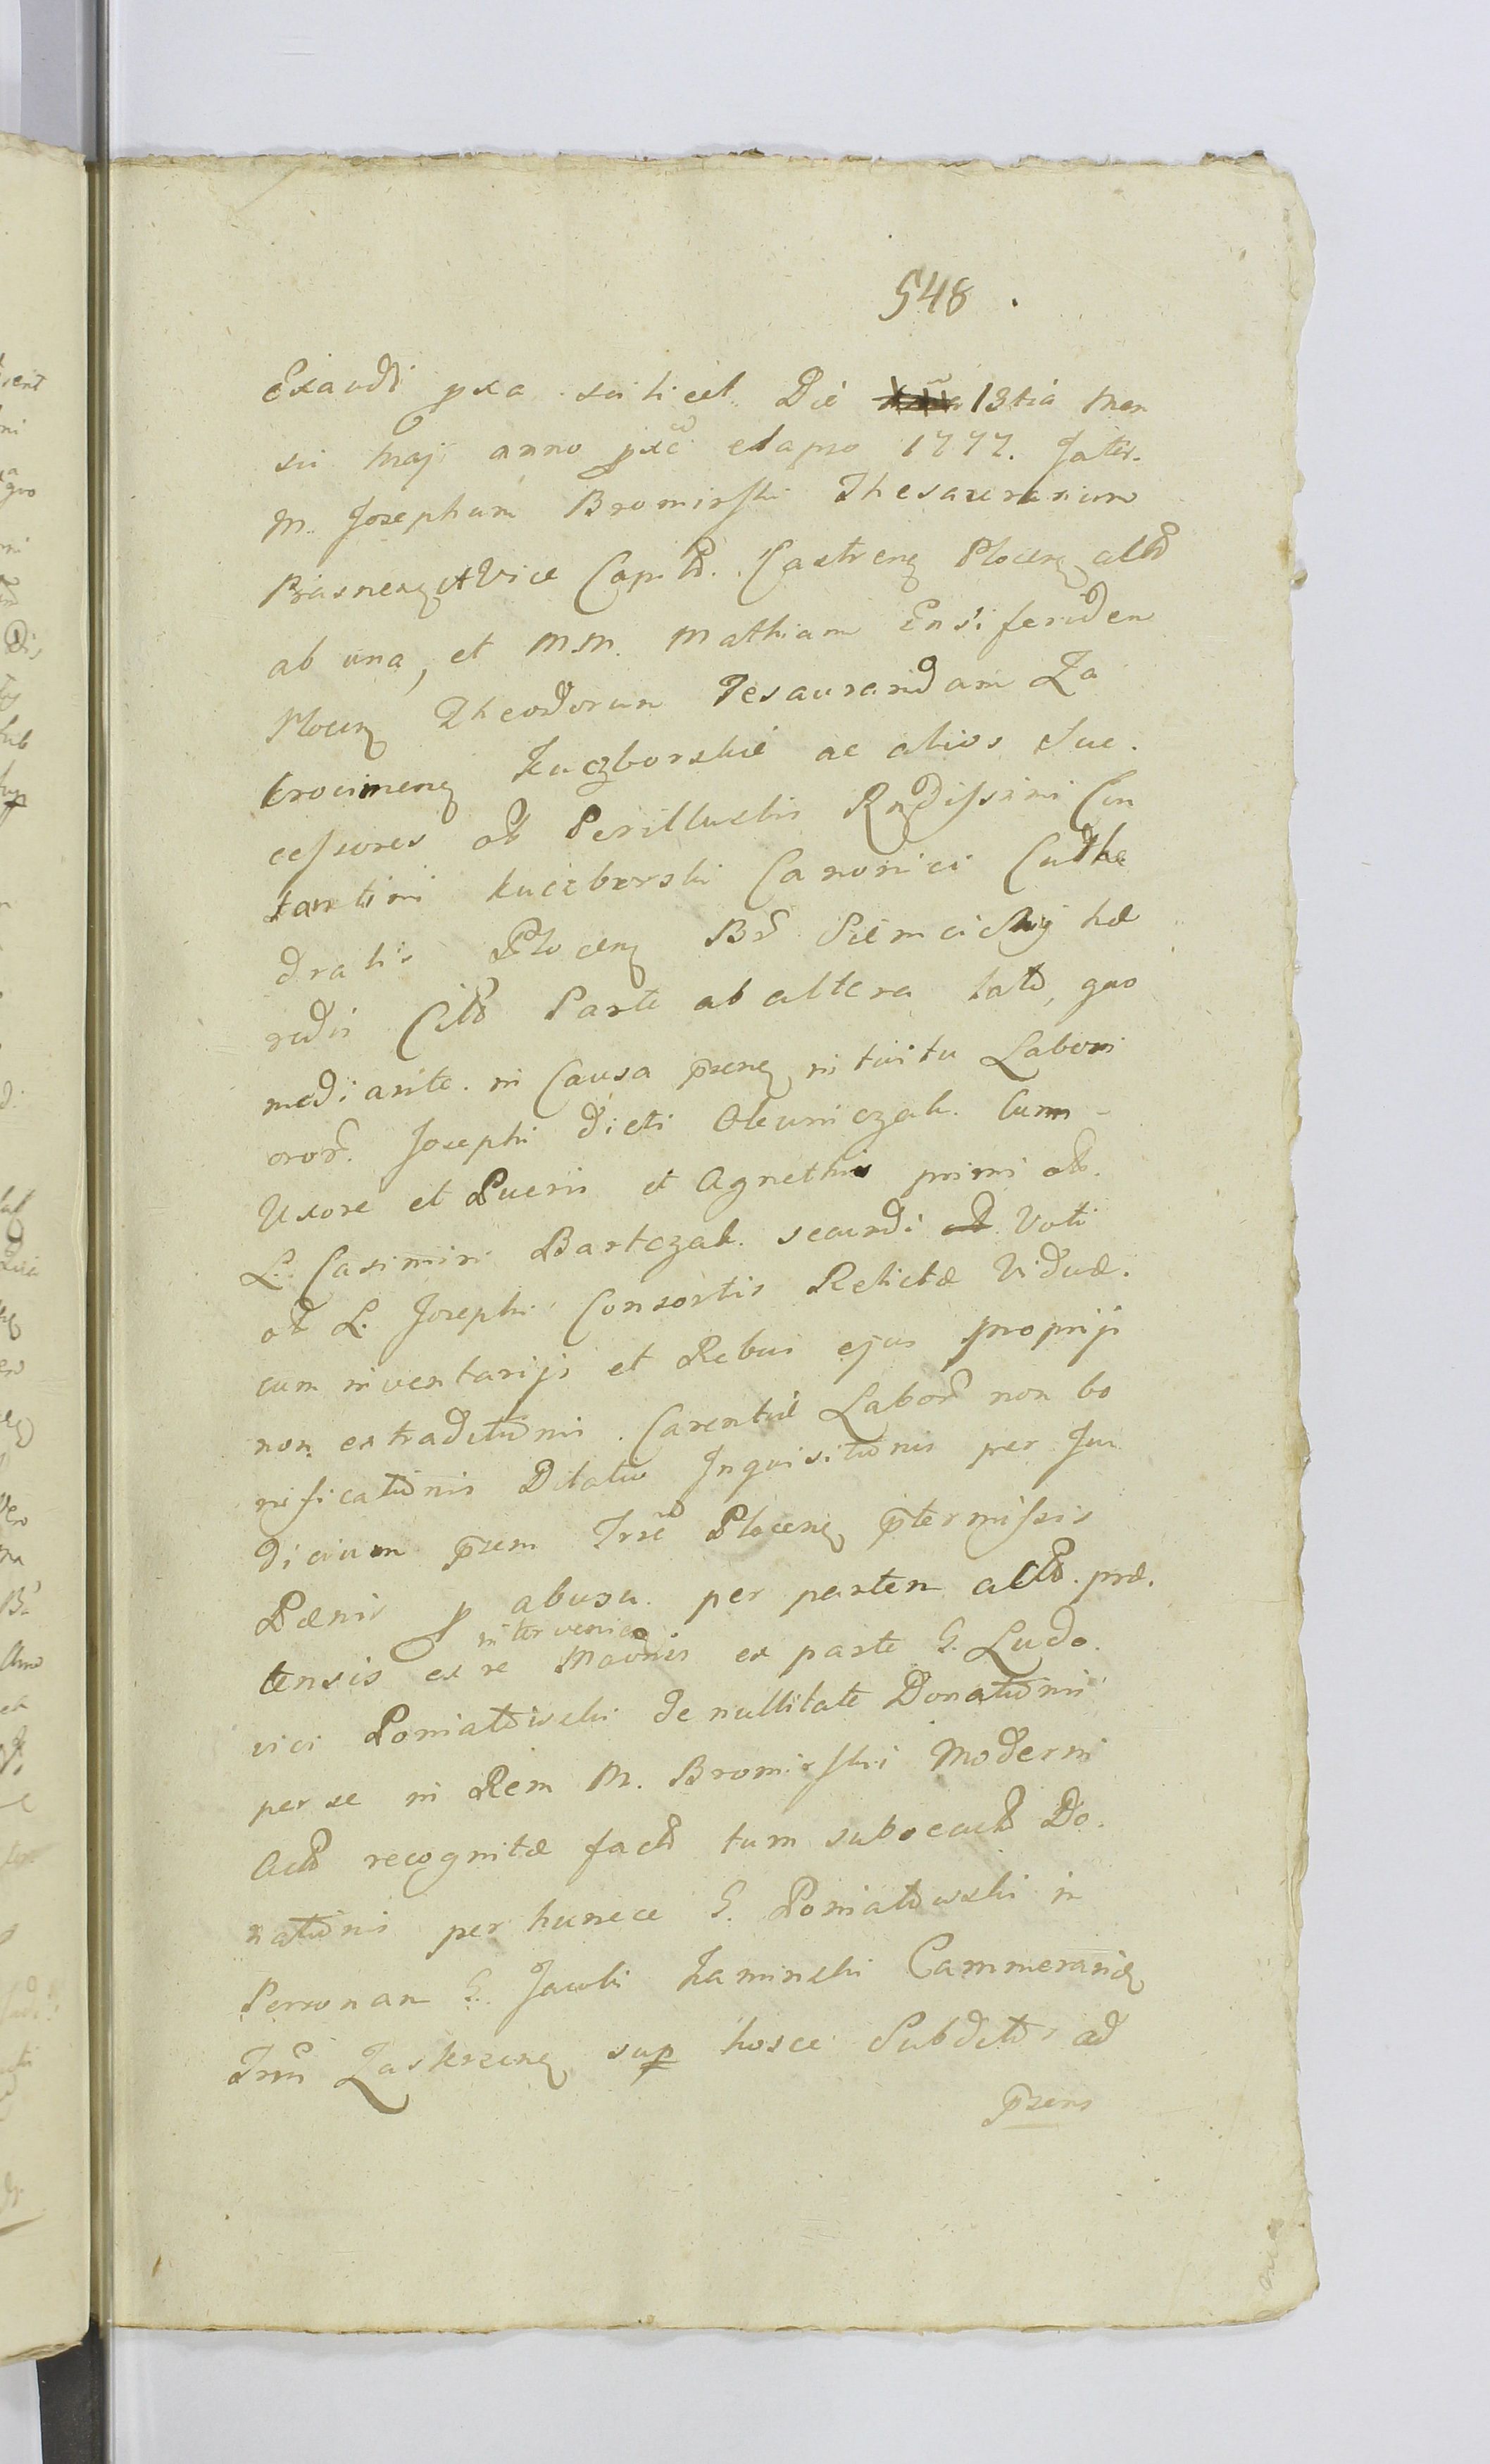 548.
Exaudi pxa scilicet Die 13tia Men
sis Maji anno pxe elapso 1777. Inter.
M. Josephum Bromirski Thesaurarium
Prasneng et Vice Capit. Castreng Ploceng acto
ab una, et M.M. Mathiam Ensiferiden
Ploceng Theodorum Tesauraridam Za
krocimeng Kuczborskie ac alios Suc.
cessores ol Perillustris Rndissimi Con
stantini Kuczborski Canonici Cathe
dralis Ploceng Br Siemcichy hæ
redis Cito Parte ab altera lato, quo
mediante in Causa pseng intuitu Labori
oror. Josephi dicti Oleuniczak. Cum
Uxore et Pueris et Agnethis primi ol.
L. Casimiri Bartczak. secundi ol Voti
ol L. Josephi Consortis Relictæ Viduæ.
cum inventarijs et Rebus ejus proprijs
non extraditionis. Carentiæ Labor non bo
nificationis Dilatio Inquisitionis per Ju
dicium psem Trre Ploceng ptermissis
Pænis p abusu per partem acto. præ.
tensis ex re intervenien Maonis ex parte G. Ludo.
vici Poniatowski de nullitate Donationis
per se in Rem M. Bromirski Moderni
Acto recognitæ facto tum subsecuto Do.
nationis per huncce G. Poniatowski in
Personam G. Jacobi Kaminski Cammerarid
Trris Zaskrzeng sup hosce Subditos ad
psens